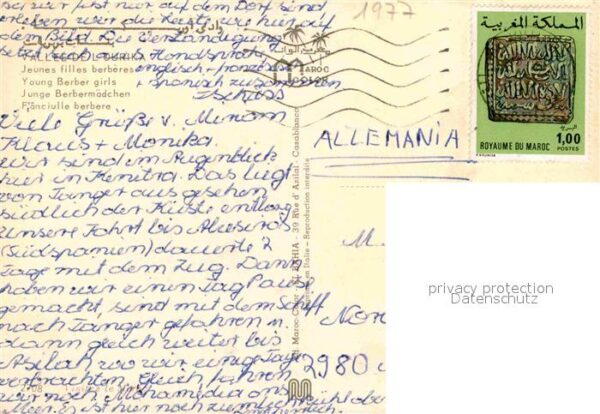 1977
bei wir jetzt nur auf dem Dorf sind
erleben wir die Leute wie hier auf
dem Bild. Die Verständigung
setzt sich aus Handsprache
englisch + französisch
+ spanisch zusammen
Tschüss
VALLEE DE L'OURIKA
Jeunes filles berbères
Young Berber girls
Junge Berbermädchen
Fanciulle berbere
Viele Grüße v. Miriam
Klaus + Monika.
wir sind im Augenblick
hier in Kenitra. Das liegt
von Tanger aus gesehen
südlich der Küste entlang.
Unsere Fahrt bis Algesiras
(Südspanien) dauerte 2
Tage mit dem Zug. Dann
haben wir einen Tag Pause
gemacht, sind mit dem Schiff
nach Tanger gefahren u.
dann gleich weiter bis
Asilah wo wir einige Tage
verbrachten. Gleich fahren
wir noch Mohamedia ans
Meer. Es ist hier noch ziemlich kühl aber
MAROC
ALLEMANIA
المملكة المغربية
ROYAUME DU MAROC
1,00
POSTES
البريد
39 Rue d'Azilal - Casablanca
Reproduction interdite
M.
Nor
2980
privacy protection
Datenschutz